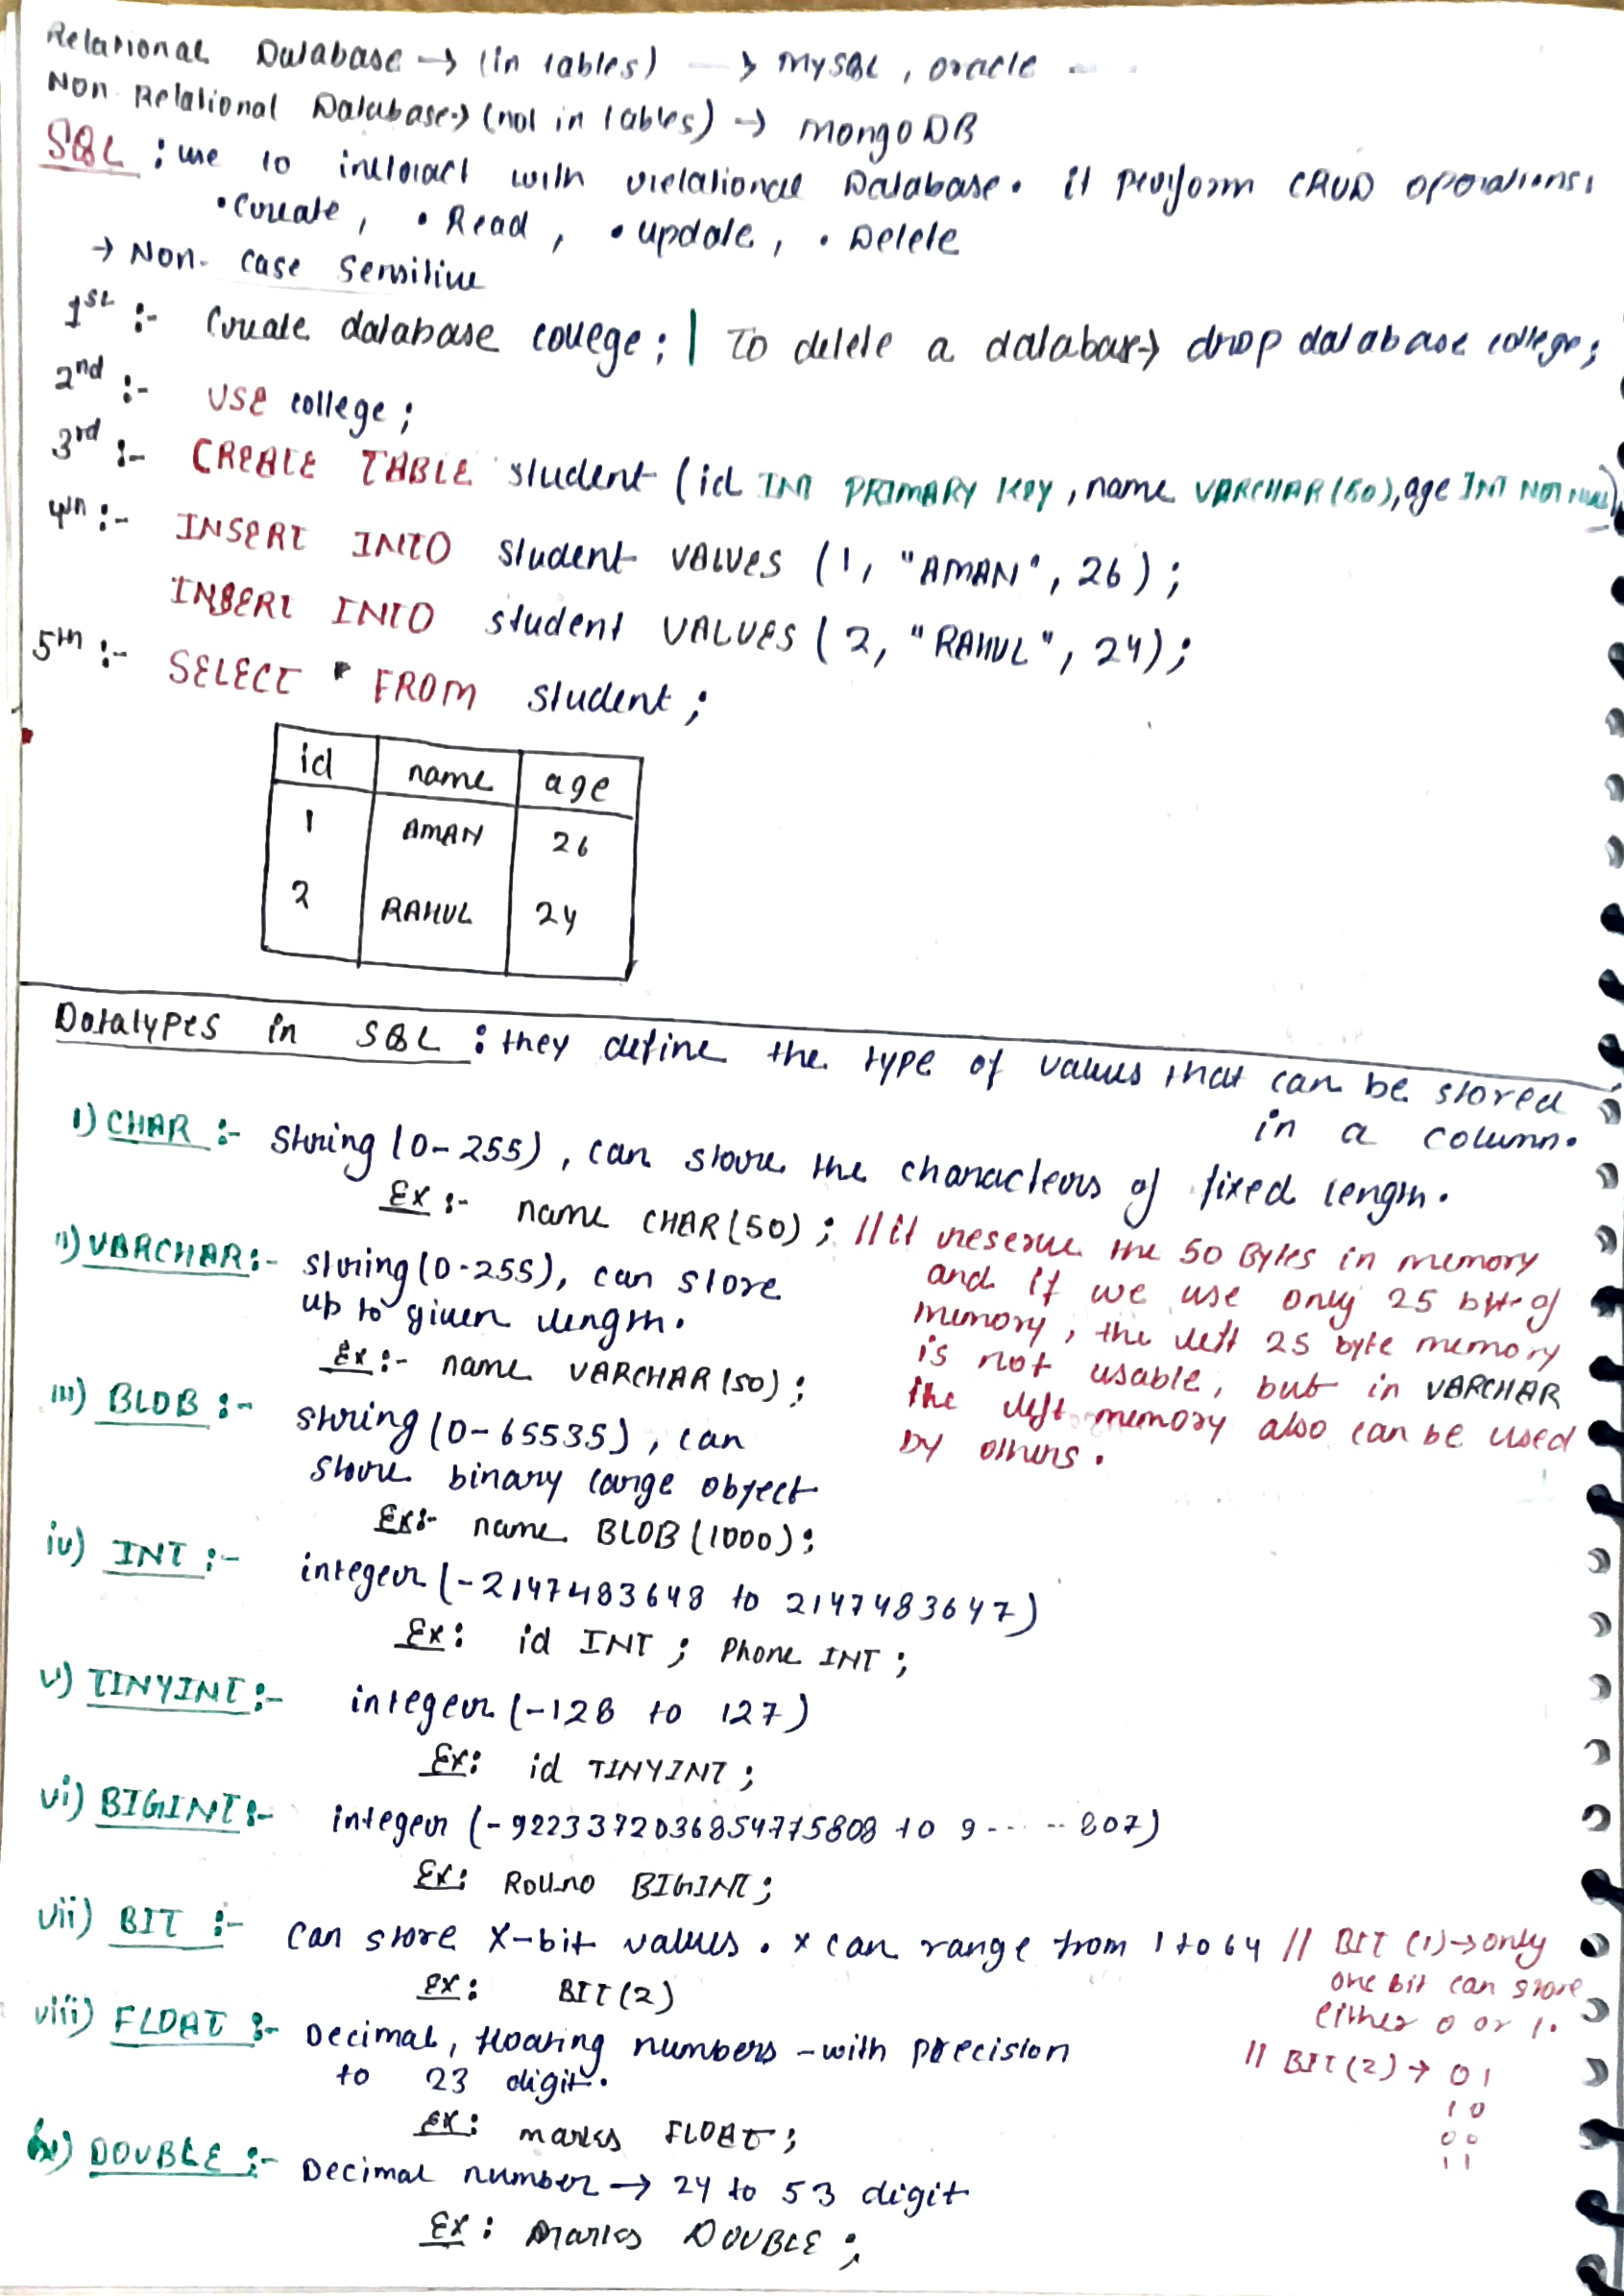 Relational Database → (in tables) → MySQL, oracle
Non Relational Database → (not in tables) → MongoDB
SQL : use to interact with relational Database. it perform CRUD operations.
• Create, • Read, • Update, • Delete
→ Non-case sensitive
1st :- Create database college; | To delete a database → drop database college;
2nd :- USE college;
3rd :- CREATE TABLE student (id INT PRIMARY KEY, name VARCHAR(50), age INT NOT NULL);
4th :- INSERT INTO student VALUES (1, "AMAN", 26);
INSERT INTO student VALUES (2, "RAHUL", 24);
5th :- SELECT * FROM student;
id name age
1 AMAN 26
2 RAHUL 24
Datatypes in SQL : they define the type of values that can be stored
in a column.
i) CHAR :- String (0-255), can store the characters of fixed length.
Ex :- name CHAR(50); // it reserve the 50 Bytes in memory
and if we use only 25 byte of
memory, the left 25 byte memory
is not usable, but in VARCHAR
the left memory also can be used
by others.
ii) VARCHAR :- string (0-255), can store
up to given length.
Ex :- name VARCHAR(50);
iii) BLOB :- string (0-65535), can
store binary large object
Ex:- name BLOB(1000);
iv) INT :- integer (-2147483648 to 2147483647)
Ex: id INT; Phone INT;
v) TINYINT :- integer (-128 to 127)
Ex: id TINYINT;
vi) BIGINT :- integer (-9223372036854775808 to 9-----807)
Ex: Rollno BIGINT;
vii) BIT :- Can store x-bit values. x can range from 1 to 64 // BIT (1) → only
one bit can store
either 0 or 1.
Ex: BIT(2)
// BIT(2) → 01
10
00
11
viii) FLOAT :- Decimal, floating numbers - with precision
to 23 digit.
Ex: marks FLOAT;
ix) DOUBLE :- Decimal number → 24 to 53 digit
Ex: Marks DOUBLE;